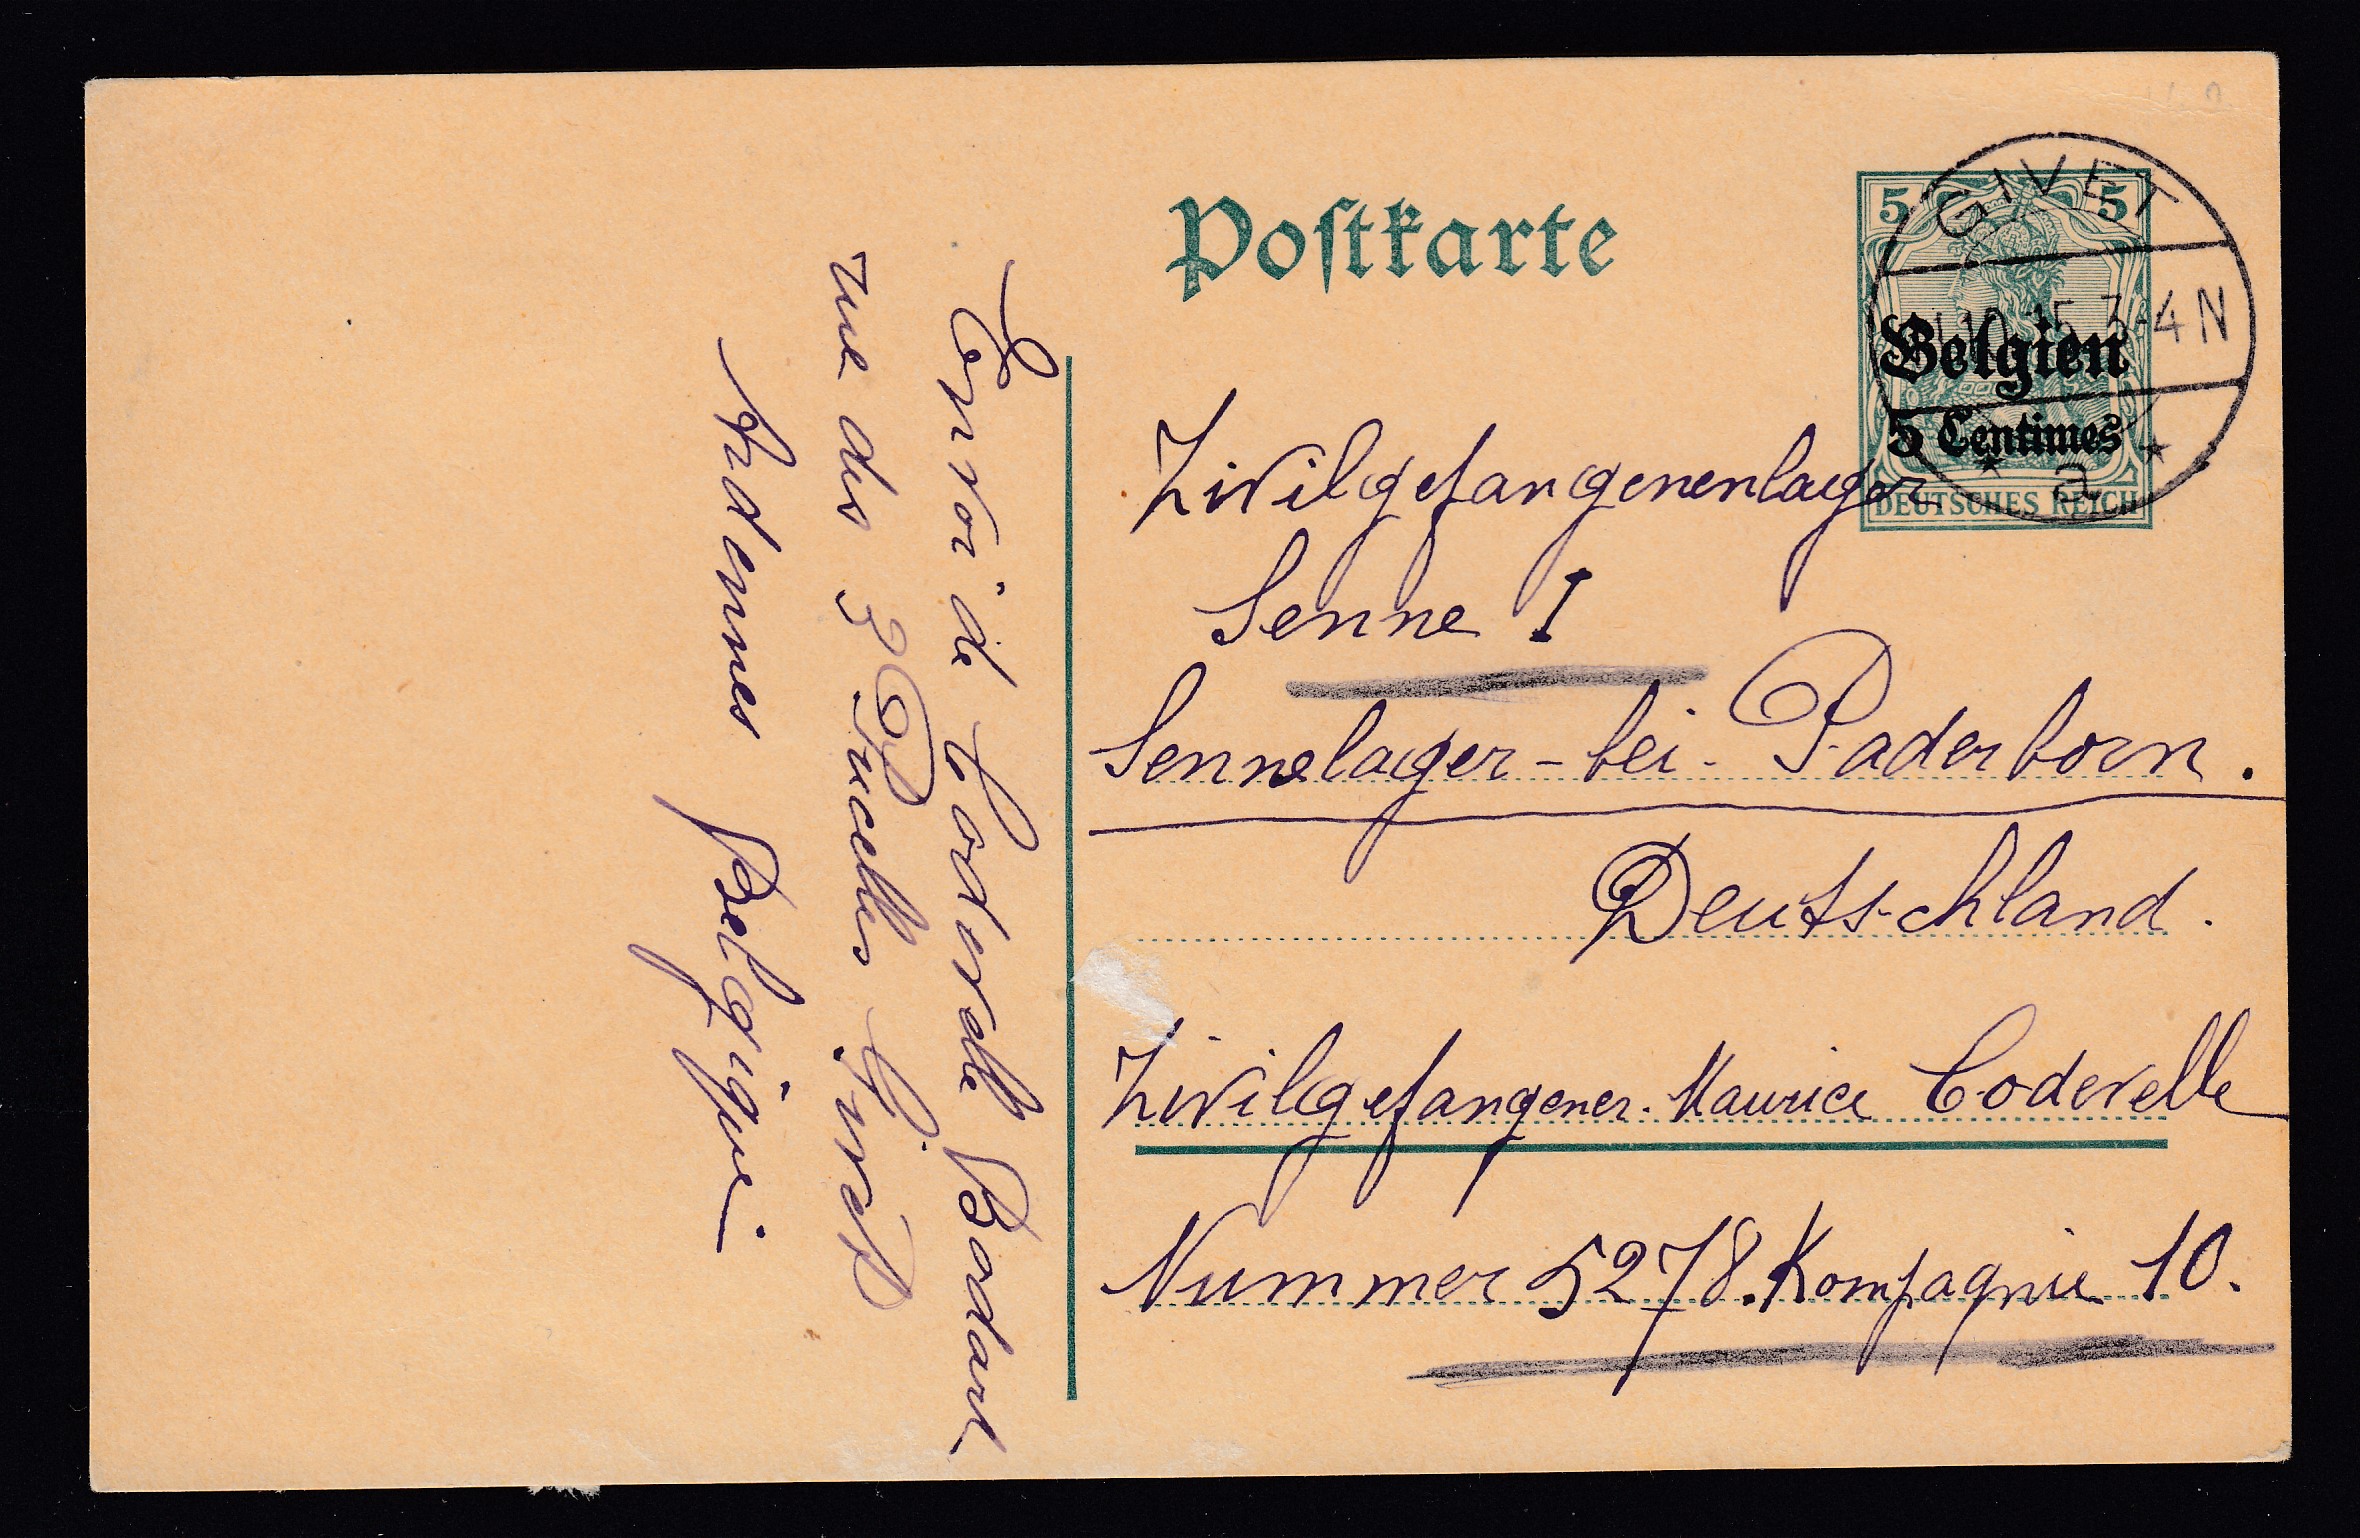 Postkarte
5 5
Belgien
5 Centimes
DEUTSCHES REICH
GIVET
10 15 3-4 N
* a *
Zivilgefangenenlager
Senne I
Sennelager - bei - Paderborn.
Deutschland.
Zivilgefangener. Maurice Codevelle
Nummer 5278. Kompagnie 10.
Envoi de Codevelle Bodart
rue des 3 Pucelles Givet
Ardennes
Belgique